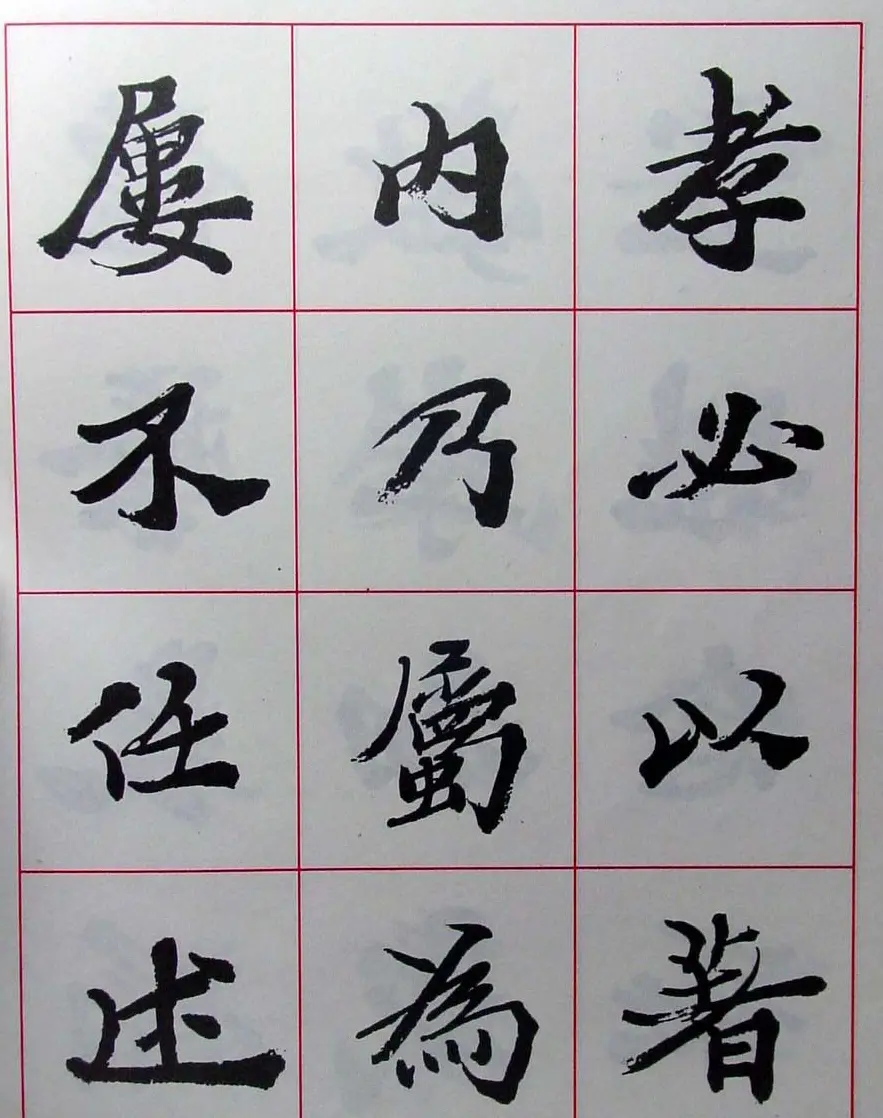 孝必以著
内乃屬為
屢不任述